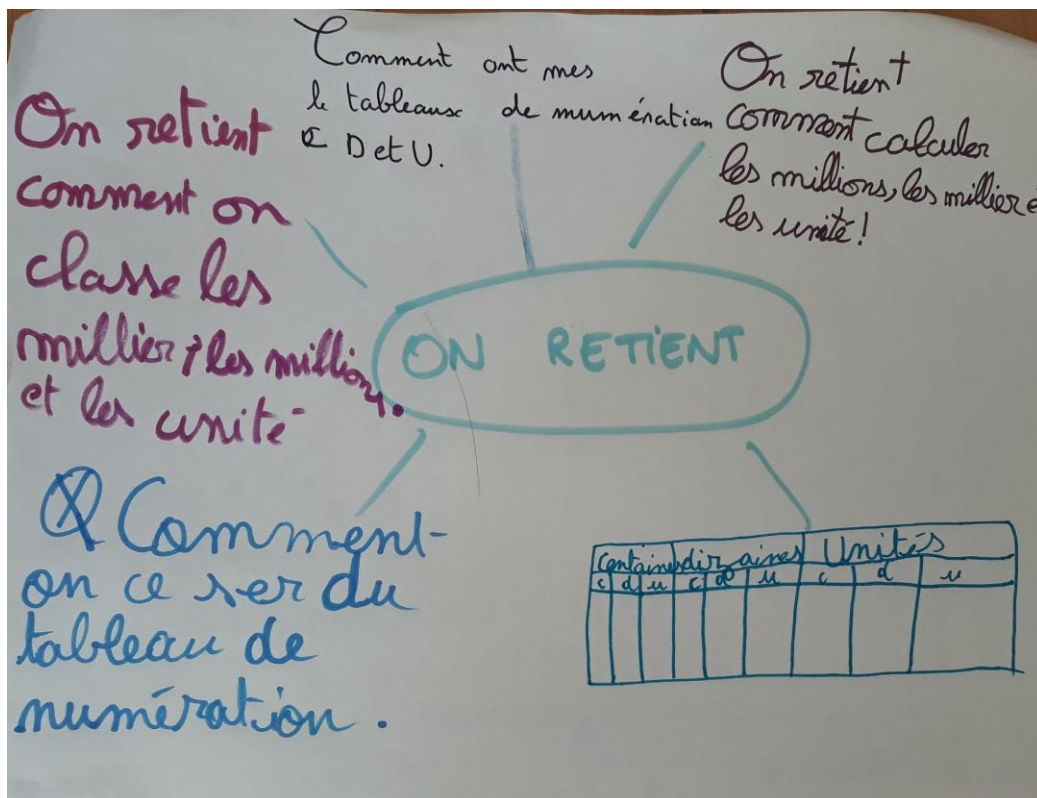 Comment ont mes
le tableaux de numération
C D et U.
On retient
comment calculer
les millions, les millier e
les unité!
On retient
comment on
classe les
millier, les millions.
et les unité
ON RETIENT
Comment-
on ce ser du
tableau de
numération.
Centaines dizaines Unités
c d u c d u c d u